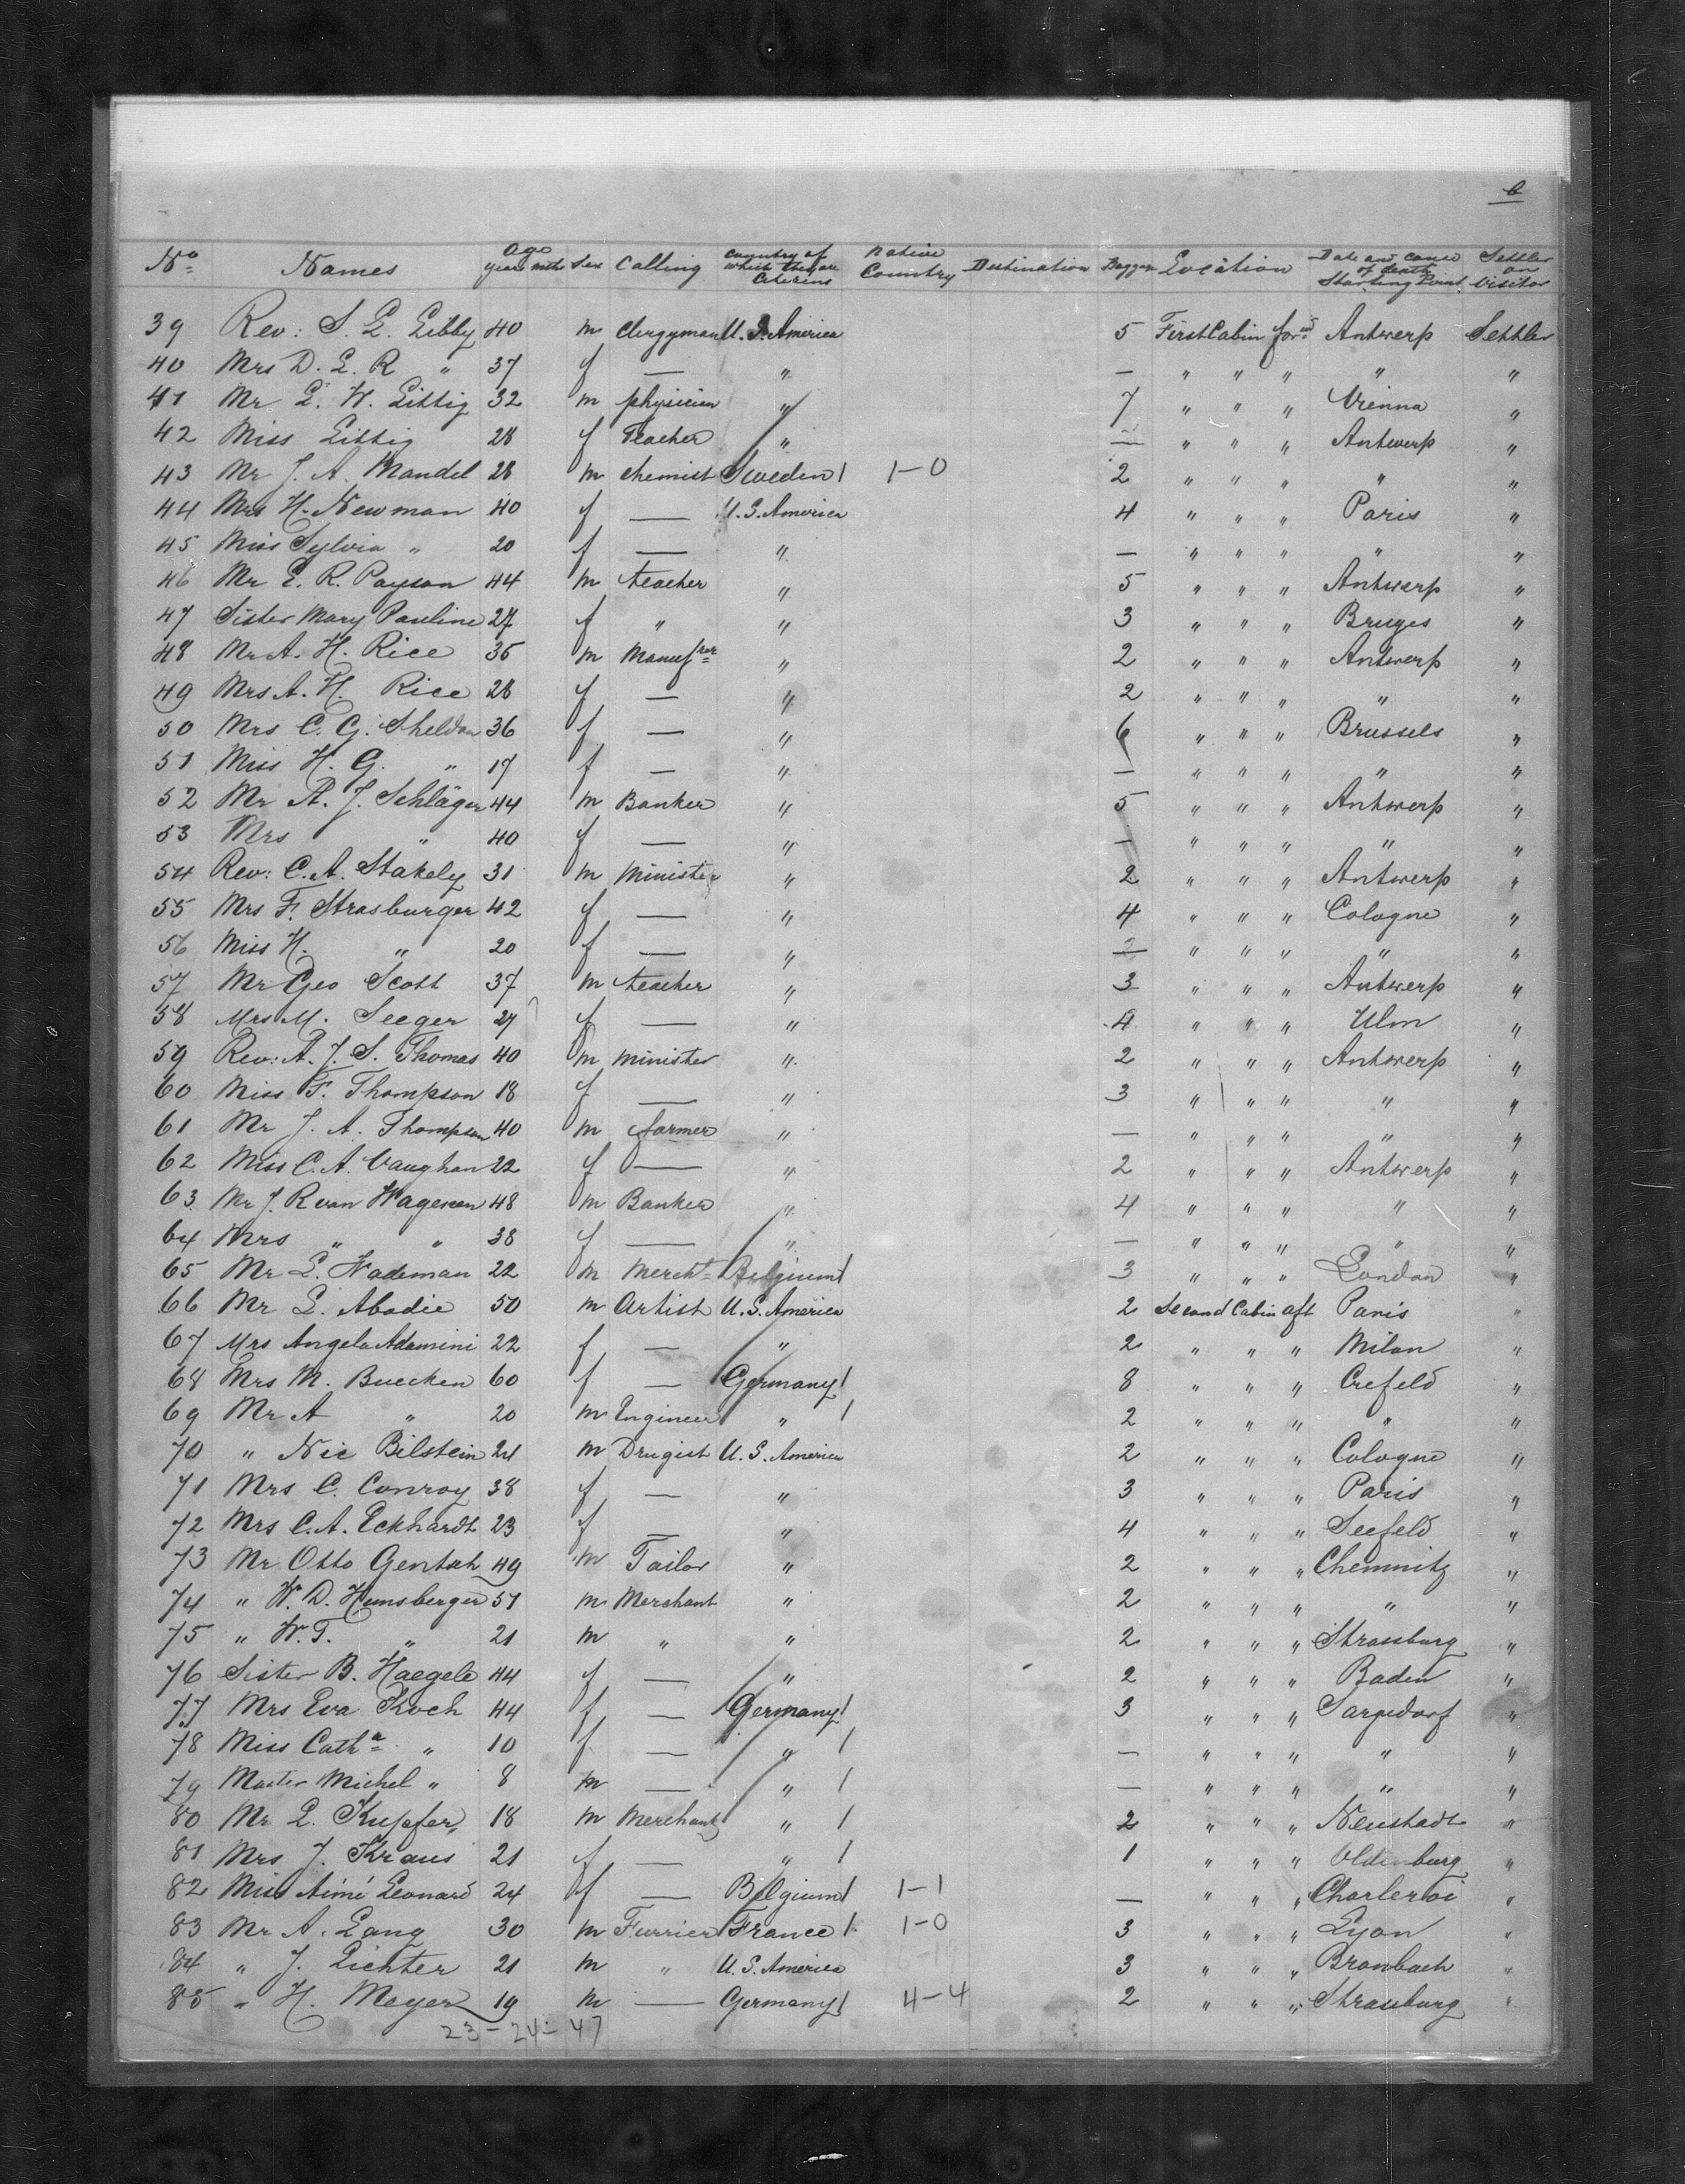 b
No Names Age years mths Sex Calling Country of which they are Citizens Native Country Destination Baggage Location Date and cause of death Starting Point Settler or Visitor
39 Rev: S. L. Libby 40 m Clergyman U.S. America 5 First Cabin forwd Antwerp Settler
40 Mrs D. L. R " 37 f — " — " " " " "
41 Mr L. W. Littig 32 m physician " 7 " " " Vienna "
42 Miss Littig 28 f Teacher " — " " " Antwerp "
43 Mr J. A. Mandel 28 m chemist Sweden 1 1-0 2 " " " " "
44 Mrs H. Newman 40 f — U.S. America 4 " " " Paris "
45 Miss Sylvia " 20 f — " — " " " " "
46 Mr E. R. Payson 44 m teacher " 5 " " " Antwerp "
47 Sister Mary Pauline 27 f " " 3 " " " Bruges "
48 Mr A. H. Rice 35 m Manufrer " 2 " " " Antwerp "
49 Mrs A. H. Rice 28 f — " 2 " " " " "
50 Mrs C. G. Sheldon 36 f — " 6 " " " Brussels "
51 Miss H. G. " 17 f — " — " " " " "
52 Mr A. J. Schläger 44 m Banker " 5 " " " Antwerp "
53 Mrs " 40 f — " — " " " " "
54 Rev: C. A. Stakely 31 m Minister " 2 " " " Antwerp "
55 Mrs F. Strasburger 42 f — " 4 " " " Cologne "
56 Miss H. " 20 f — " — " " " " "
57 Mr Geo Scott 37 m teacher " 3 " " " Antwerp "
58 Mrs M. Seeger 27 f — " 4 " " " Ulm "
59 Rev: A. J. S. Thomas 40 m minister " 2 " " " Antwerp "
60 Miss F. Thompson 18 f — " 3 " " " " "
61 Mr J. A. Thompson 40 m farmer " — " " " " "
62 Miss C. A. Vaughan 22 f — " 2 " " " Antwerp "
63 Mr J. R van Wagenen 48 m Banker " 4 " " " " "
64 Mrs " " 38 f — " — " " " " "
65 Mr L. Wademan 22 m Mercht Belgium 1 3 " " " London "
66 Mr L. Abadie 50 m Artist U.S. America 2 Second Cabin aft Paris "
67 Mrs Angela Adamini 22 f — " 2 " " " Milan "
68 Mrs M. Buecken 60 f — Germany 1 8 " " " Crefeld "
69 Mr A " 20 m Engineer " 1 2 " " " " "
70 " Nic Bilstein 24 m Drugist U.S. America 2 " " " Cologne "
71 Mrs C. Conroy 38 f — " 3 " " " Paris "
72 Mrs C. A. Eckhardt 23 f — " 4 " " " Seefeld "
73 Mr Otto Gentsch 49 m Tailor " 2 " " " Chemnitz "
74 " W. D. Hunsberger 51 m Merchant " 2 " " " " "
75 " W. T. " 21 m " " 2 " " " Strassburg "
76 Sister B. Haegele 44 f — " 2 " " " Baden "
77 Mrs Eva Koch 44 f — Germany 1 3 " " " Sargedorf "
78 Miss Catha " 10 f — " 1 — " " " " "
79 Master Michel " 8 m — " 1 — " " " " "
80 Mr L. Kupfer 18 m Merchant " 1 2 " " " Neustadt "
81 Mrs J. Kraus 21 f — " 1 1 " " " Oldenburg "
82 Miss Aimé Leonard 24 f — Belgium 1 1-1 — " " " Charleroi "
83 Mr A. Lang 30 m Furrier France 1 1-0 3 " " " Lyon "
84 " J. Lichter 21 m " U.S. America 3 " " " Brambach "
85 " H. Meyer 19 m — Germany 1 4-4 2 " " " Strassburg "
23-24-47